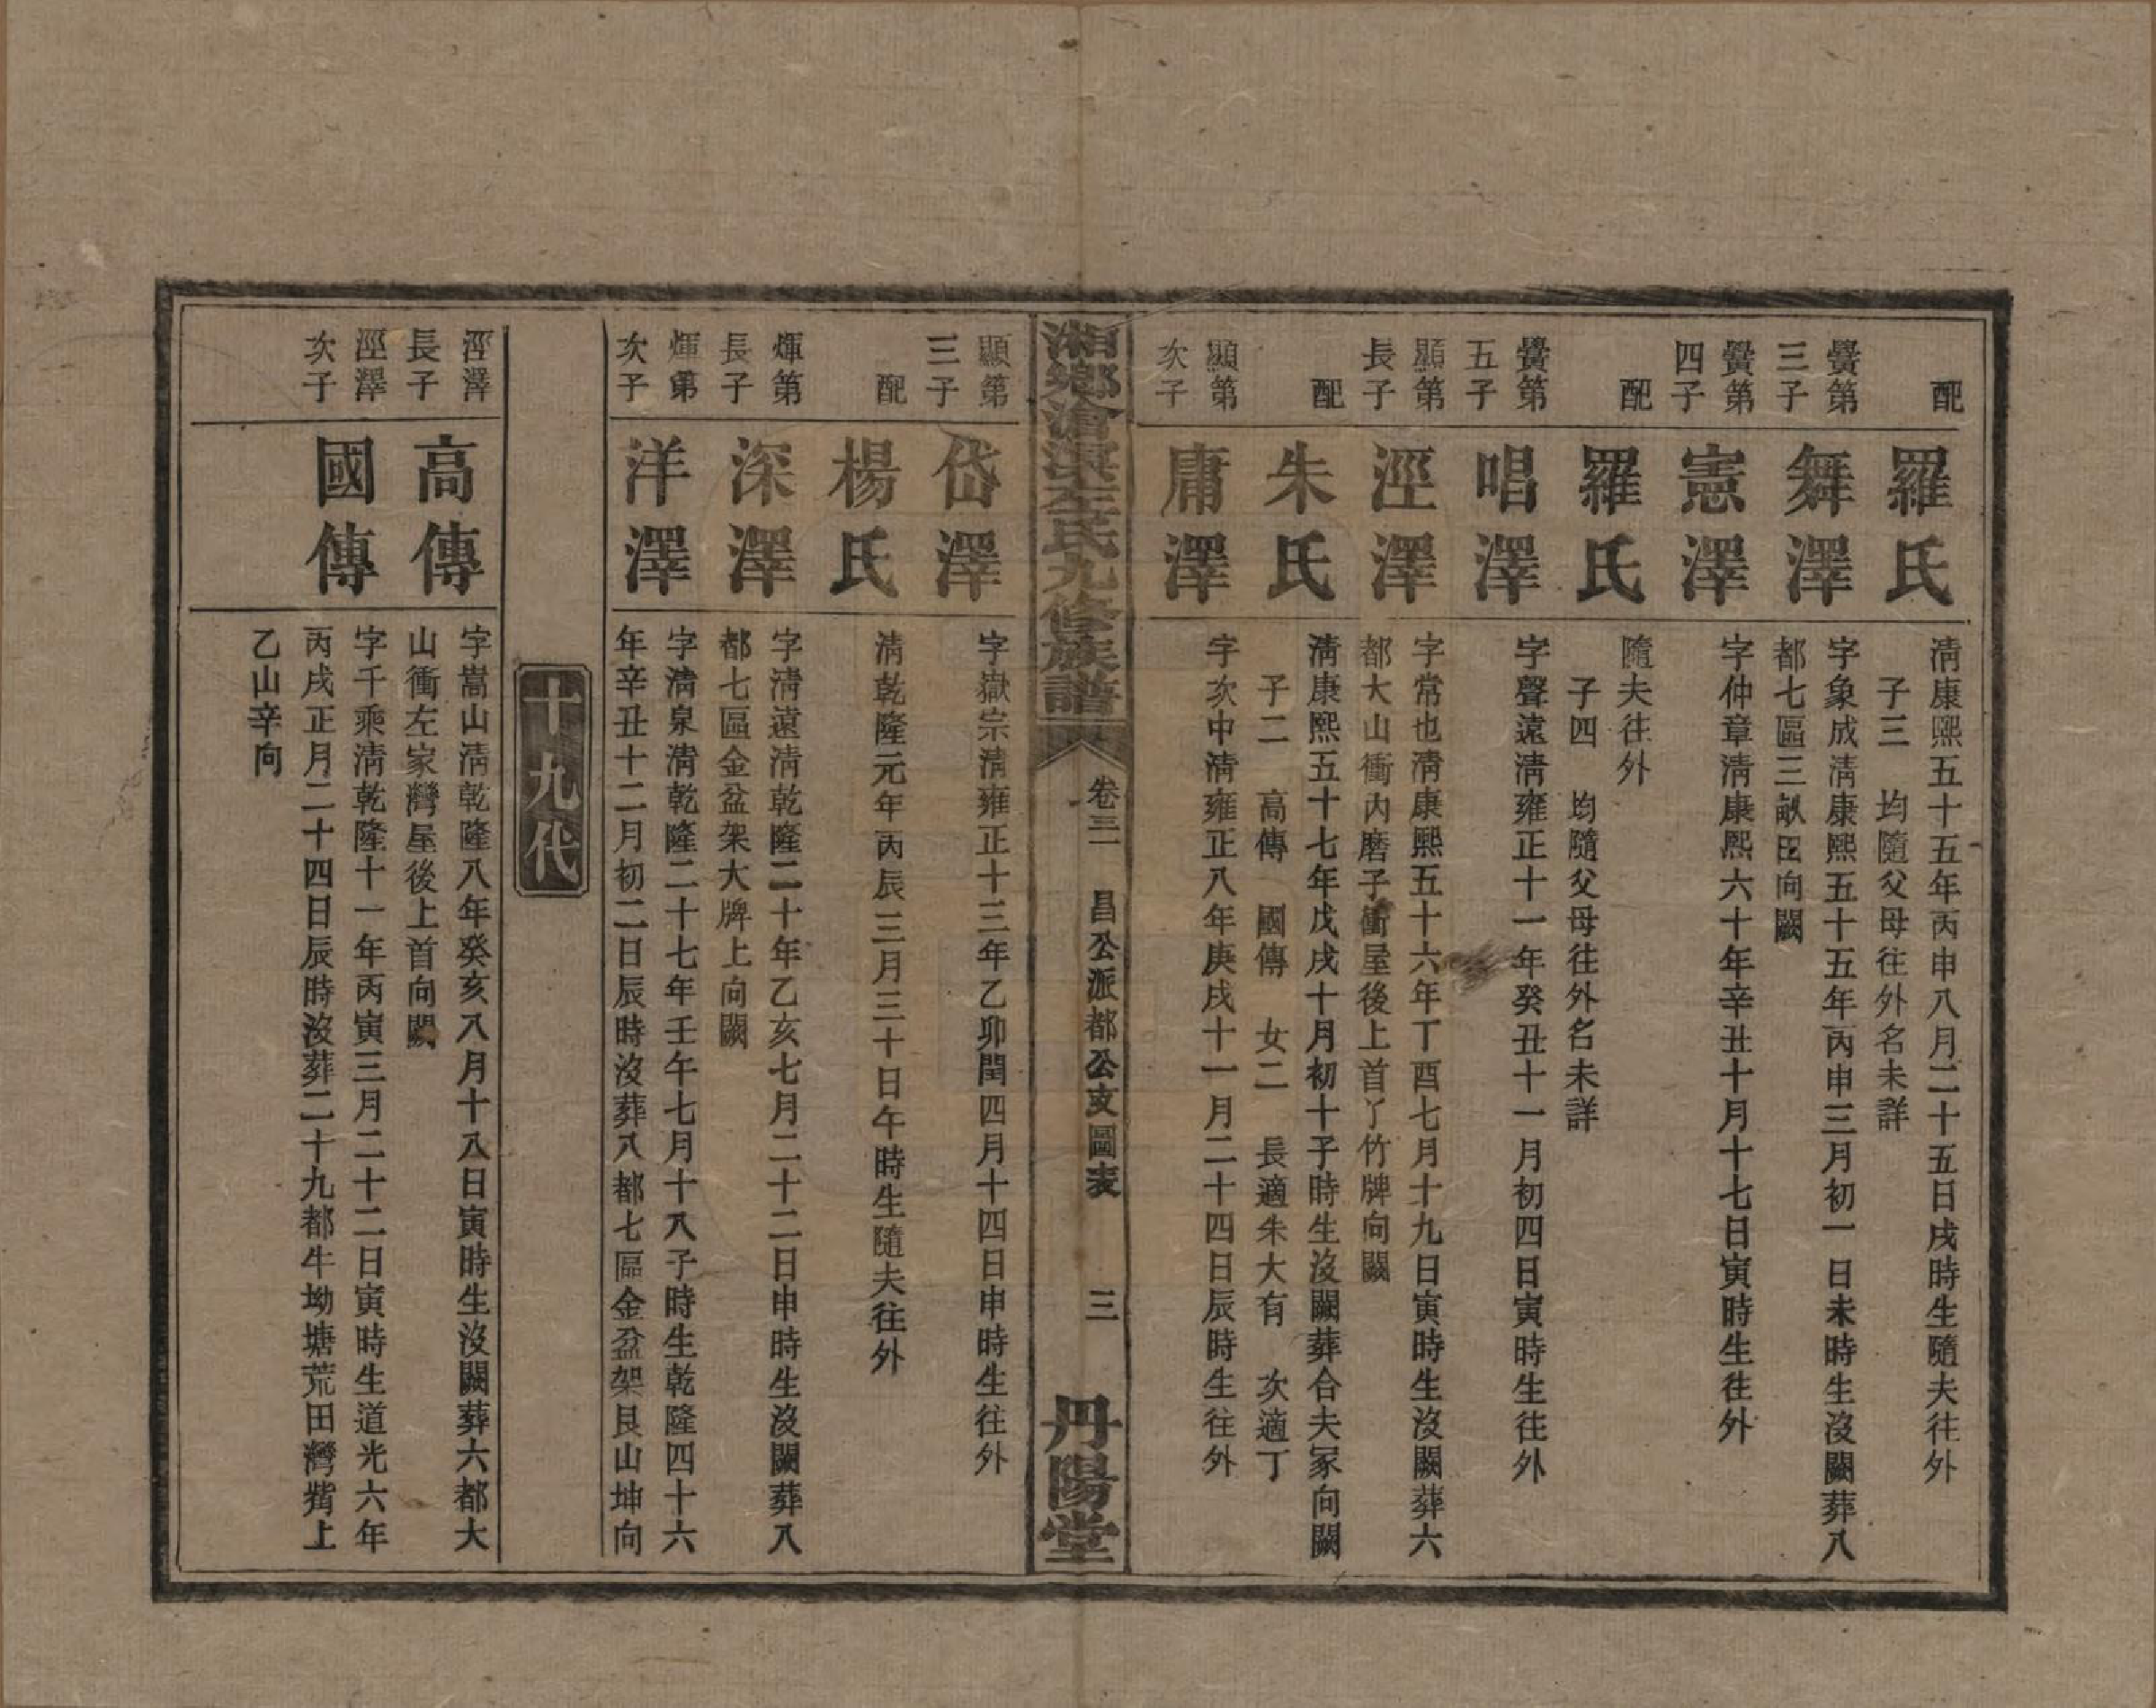 配
羅氏
淸康熙五十五年丙申八月二十五日戌時生隨夫往外
子三　均隨父母往外名未詳
黌第
三子
舞澤
字象成淸康熙五十五年丙申三月初一日未時生沒闕葬八
都七區三畝田向闕
黌第
四子
憲澤
字仲章淸康熙六十年辛丑十月十七日寅時生往外
配
羅氏
隨夫往外
子四　均隨父母往外名未詳
黌第
五子
唱澤
字聲遠淸雍正十一年癸丑十一月初四日寅時生往外
顯第
長子
涇澤
字常也淸康熙五十六年丁酉七月十九日寅時生沒闕葬六
都大山衝內磨子衝屋後上首丫竹牌向闕
配
朱氏
淸康熙五十七年戊戌十月初十子時生沒闕葬合夫冢向闕
子二　高傳　國傳　女二　長適朱大有　次適丁
顯第
次子
庸澤
字次中淸雍正八年庚戌十一月二十四日辰時生往外
湘鄉滄浪左氏九修族譜
卷三　昌公派都公支圖表　三
丹陽堂
顯第
三子
岱澤
字嶽宗淸雍正十三年乙卯閏四月十四日申時生往外
配
楊氏
淸乾隆元年丙辰三月三十日午時生隨夫往外
煇第
長子
深澤
字淸遠淸乾隆二十年乙亥七月二十二日申時生沒闕葬八
都七區金盆架大牌上向闕
煇第
次子
洋澤
字淸泉淸乾隆二十七年壬午七月十八子時生乾隆四十六
年辛丑十二月初二日辰時沒葬八都七區金盆架艮山坤向
十九代
涇澤
長子
高傳
字嵩山淸乾隆八年癸亥八月十八日寅時生沒闕葬六都大
山衝左家灣屋後上首向闕
涇澤
次子
國傳
字千乘淸乾隆十一年丙寅三月二十二日寅時生道光六年
丙戌正月二十四日辰時沒葬二十九都牛坳塘荒田灣觜上
乙山辛向